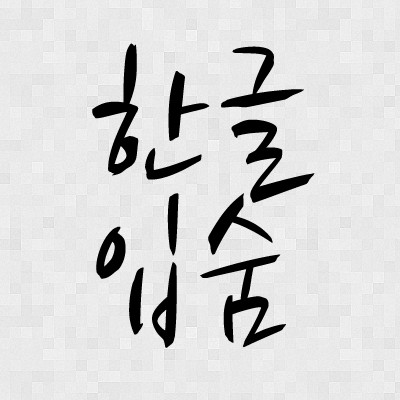 한글
입숨